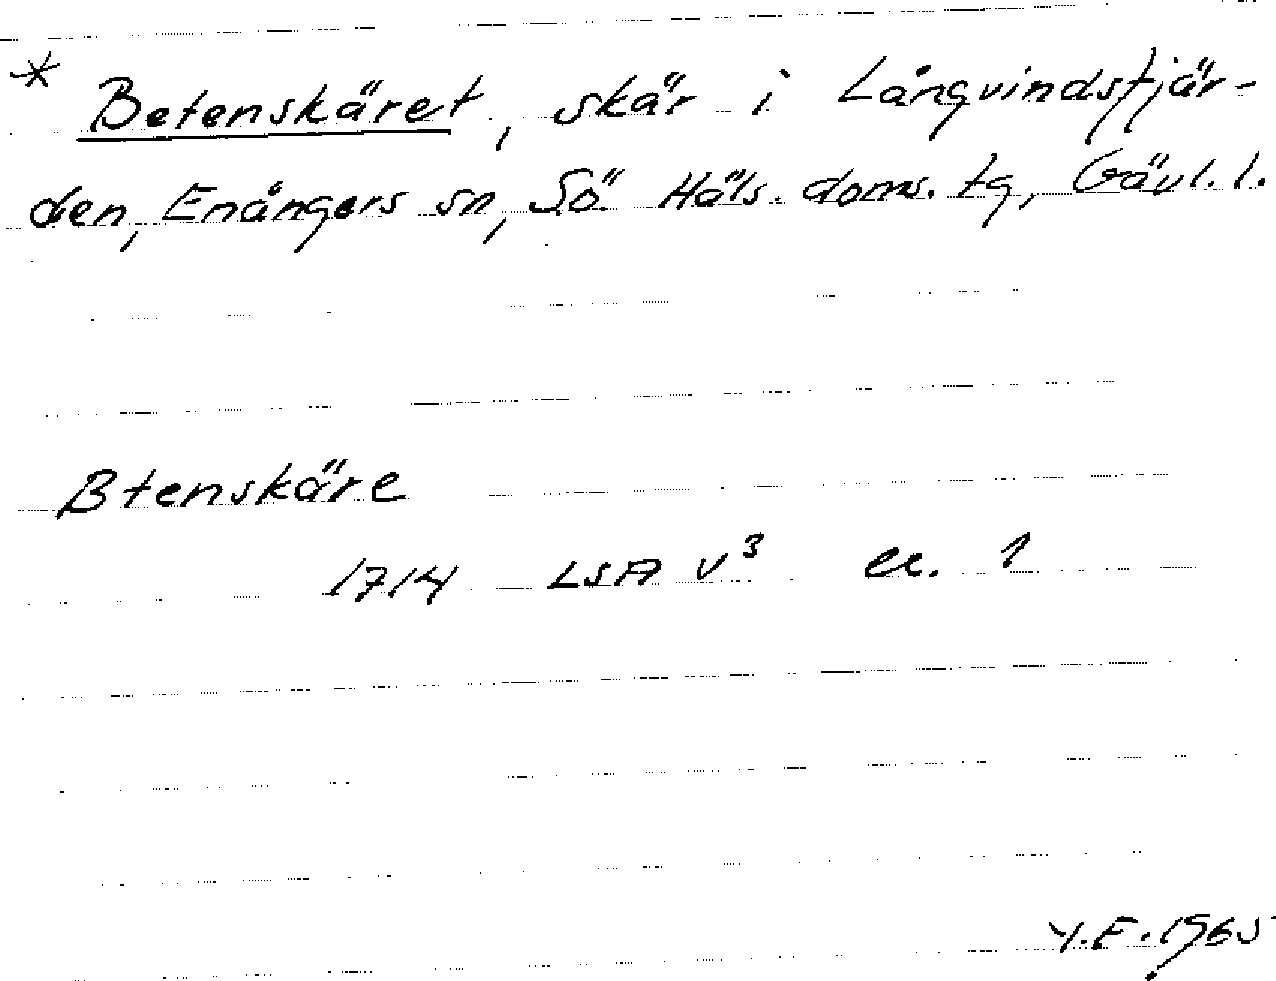 * Betenskäret, skär i Långvindsfjär-
den, Enångers sn, Sö. Häls. doms. tg, Gävl. l.
Btenskäre
1714 LSA v³ ec. 1
Y.E. 1965